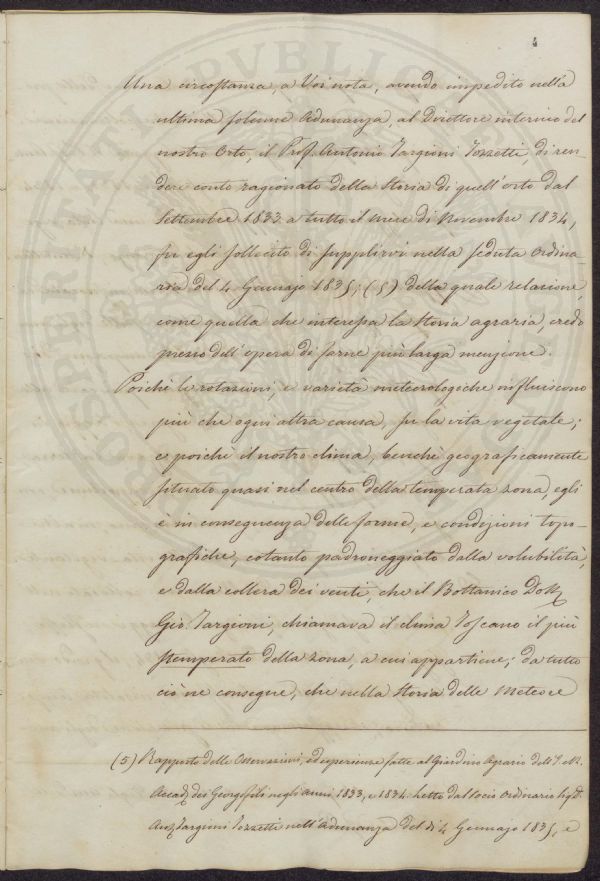 4
Una circostanza, a Voi nota, avendo impedito nella
ultima solenne Adunanza, al Direttore interino del
nostro Orto, il Prof. Antonio Targioni Tozzetti, di ren-
dere conto ragionato della Storia di quell'orto dal
Settembre 1833 a tutto il mese di Novembre 1834,
fu egli sollecito di supplirvi nella seduta ordina-
ria del 4 Gennajo 1835; (5) della quale relazione,
come quella che interessa la Storia agraria, credo
prezzo dell'opera di farne più larga menzione.
Poichè le rotazioni, e varietà meteorologiche influiscono
più che ogni altra causa, su la vita vegetate;
e poichè il nostro clima, benchè geograficamente
situato quasi nel centro della temperata zona, egli
è in conseguenza delle forme, e condizioni topo-
grafiche, cotanto padroneggiato dalla volubilità,
e dalla collera dei venti, che il Bottanico Dott.
Gio. Targioni, chiamava il clima Toscano il più
stemperato della zona, a cui appartiene; da tutto
ciò ne consegue, che nella Storia delle Meteore
(5) Rapporto delle Osservazioni, ed esperienze fatte al Giardino Agrario dell'I. e R.
Accad. dei Georgofili negli anni 1833, e 1834. Letto dal socio Ordinario Sig. D.
Ant. Targioni Tozzetti nell'Adunanza del dì 4 Gennajo 1835, e
PROSPERITATI PUBLICAE